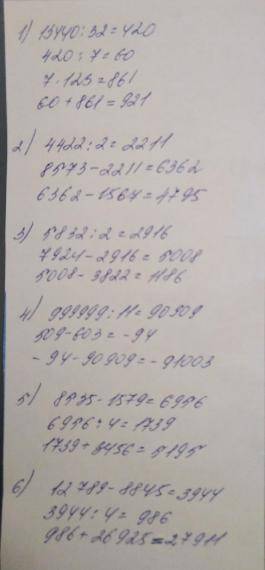 1) 13440:32=420
420:7=60
7·123=861
60+861=921
2) 4422:2=2211
8573-2211=6362
6362-1567=4795
3) 5832:2=2916
7924-2916=5008
5008-3822=1186
4) 999999:11=90909
509-603=-94
-94-90909=-91003
5) 8535-1579=6956
6956:4=1739
1739+3456=5195
6) 12789-8845=3944
3944:4=986
986+26925=27911